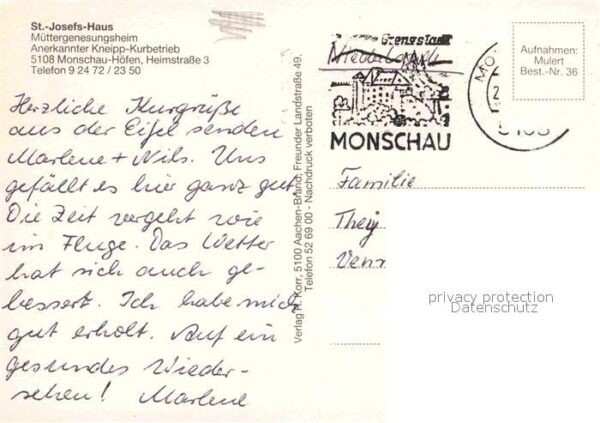 St.-Josefs-Haus
Müttergenesungsheim
Anerkannter Kneipp-Kurbetrieb
5108 Monschau-Höfen, Heimstraße 3
Telefon 9 24 72 / 23 50
Herzliche Kurgrüße
aus der Eifel senden
Marlene + Nils. Uns
gefällt es hier ganz gut.
Die Zeit vergeht wie
im Fluge. Das Wetter
hat sich auch ge-
bessert. Ich habe mich
gut erholt. Auf ein
gesundes Wieder-
sehen! Marlene
Verlag H. Korr, 5100 Aachen-Brand, Freunder Landstraße 49.
Telefon 52 69 00 - Nachdruck verboten
Grenzstadt
MONSCHAU
Aufnahmen:
Mulert
Best.-Nr. 36
Familie
privacy protection
Datenschutz